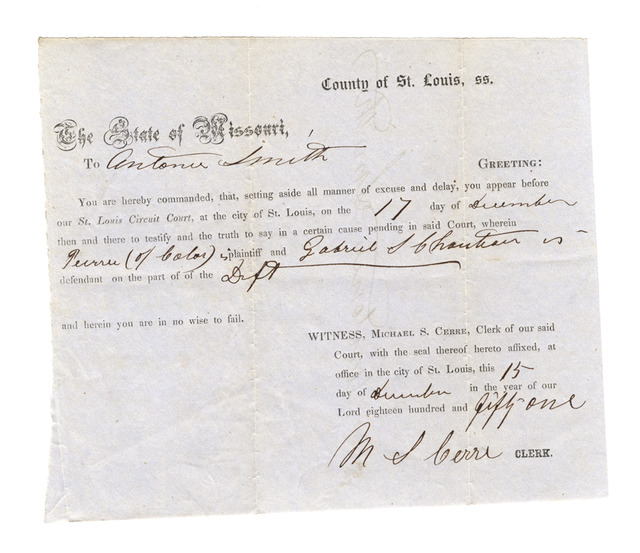 County of St. Louis, ss.
The State of Missouri,
To Antoine Smith GREETING:
You are hereby commanded, that, setting aside all manner of excuse and delay, you appear before
our St. Louis Circuit Court, at the city of St. Louis, on the 17 day of December
then and there to testify and the truth to say in a certain cause pending in said Court, wherein
Pierre (of Color) is plaintiff and Gabriel S Chouteau is
defendant on the part of of the Deft
and herein you are in no wise to fail.
WITNESS, MICHAEL S. CERRE, Clerk of our said
Court, with the seal thereof hereto affixed, at
office in the city of St. Louis, this 15
day of December in the year of our
Lord eighteen hundred and fifty one
M S Cerre CLERK.